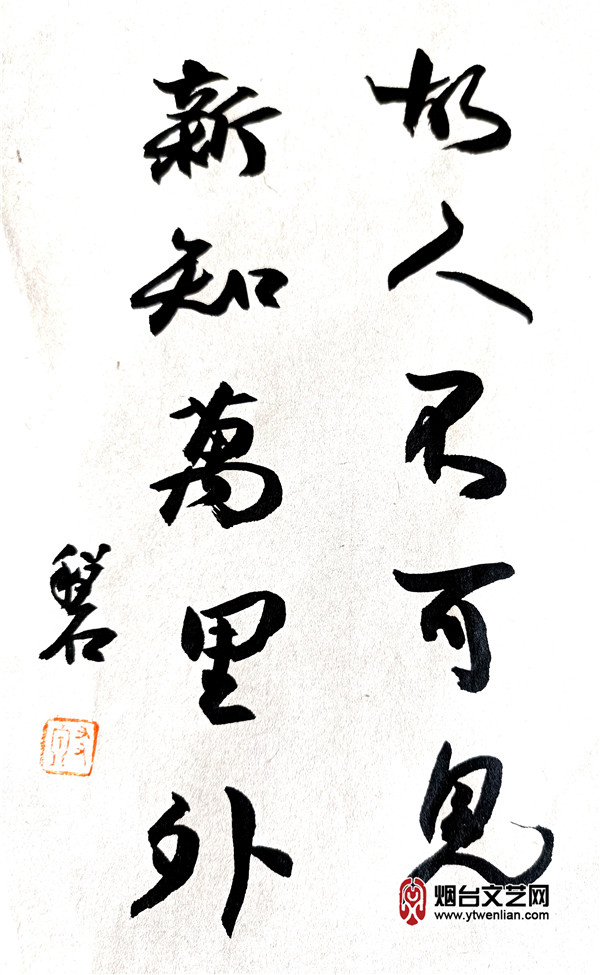 故人不可見
新知萬里外
烟台文艺网
www.ytwenlian.com